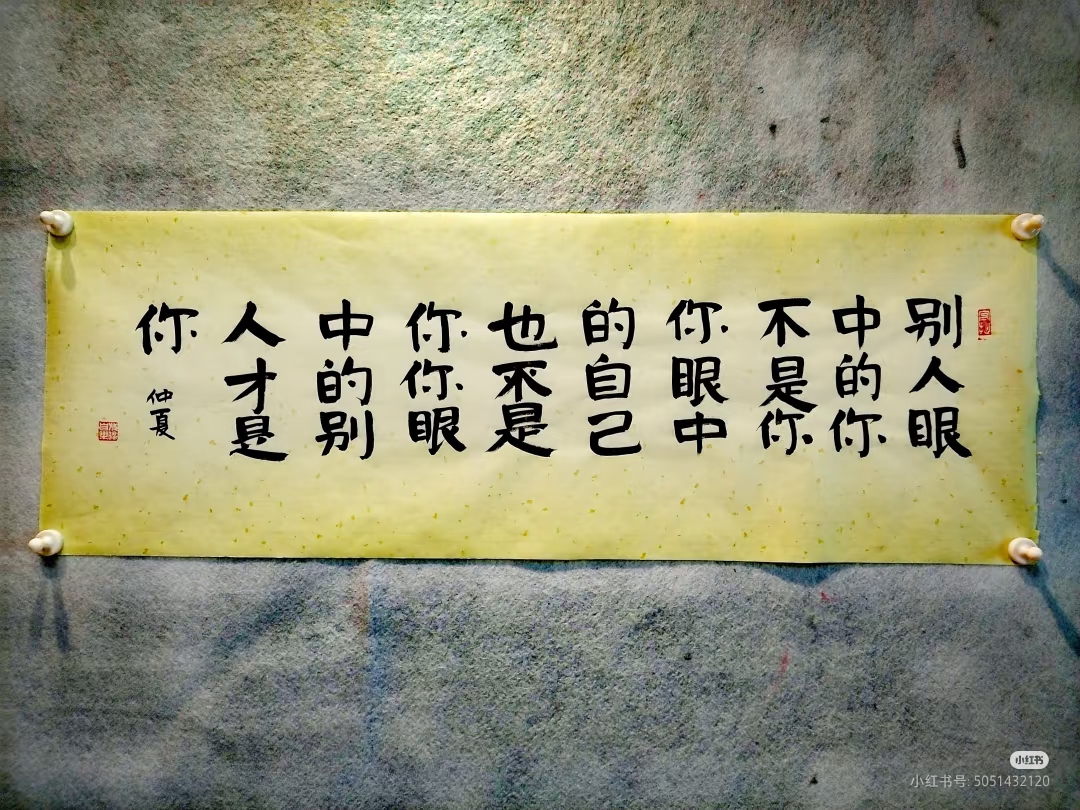 别人眼
中的你
不是你
你眼中
的自己
也不是
你你眼
中的别
人才是
你
仲夏
小红书
小红书号: 5051432120